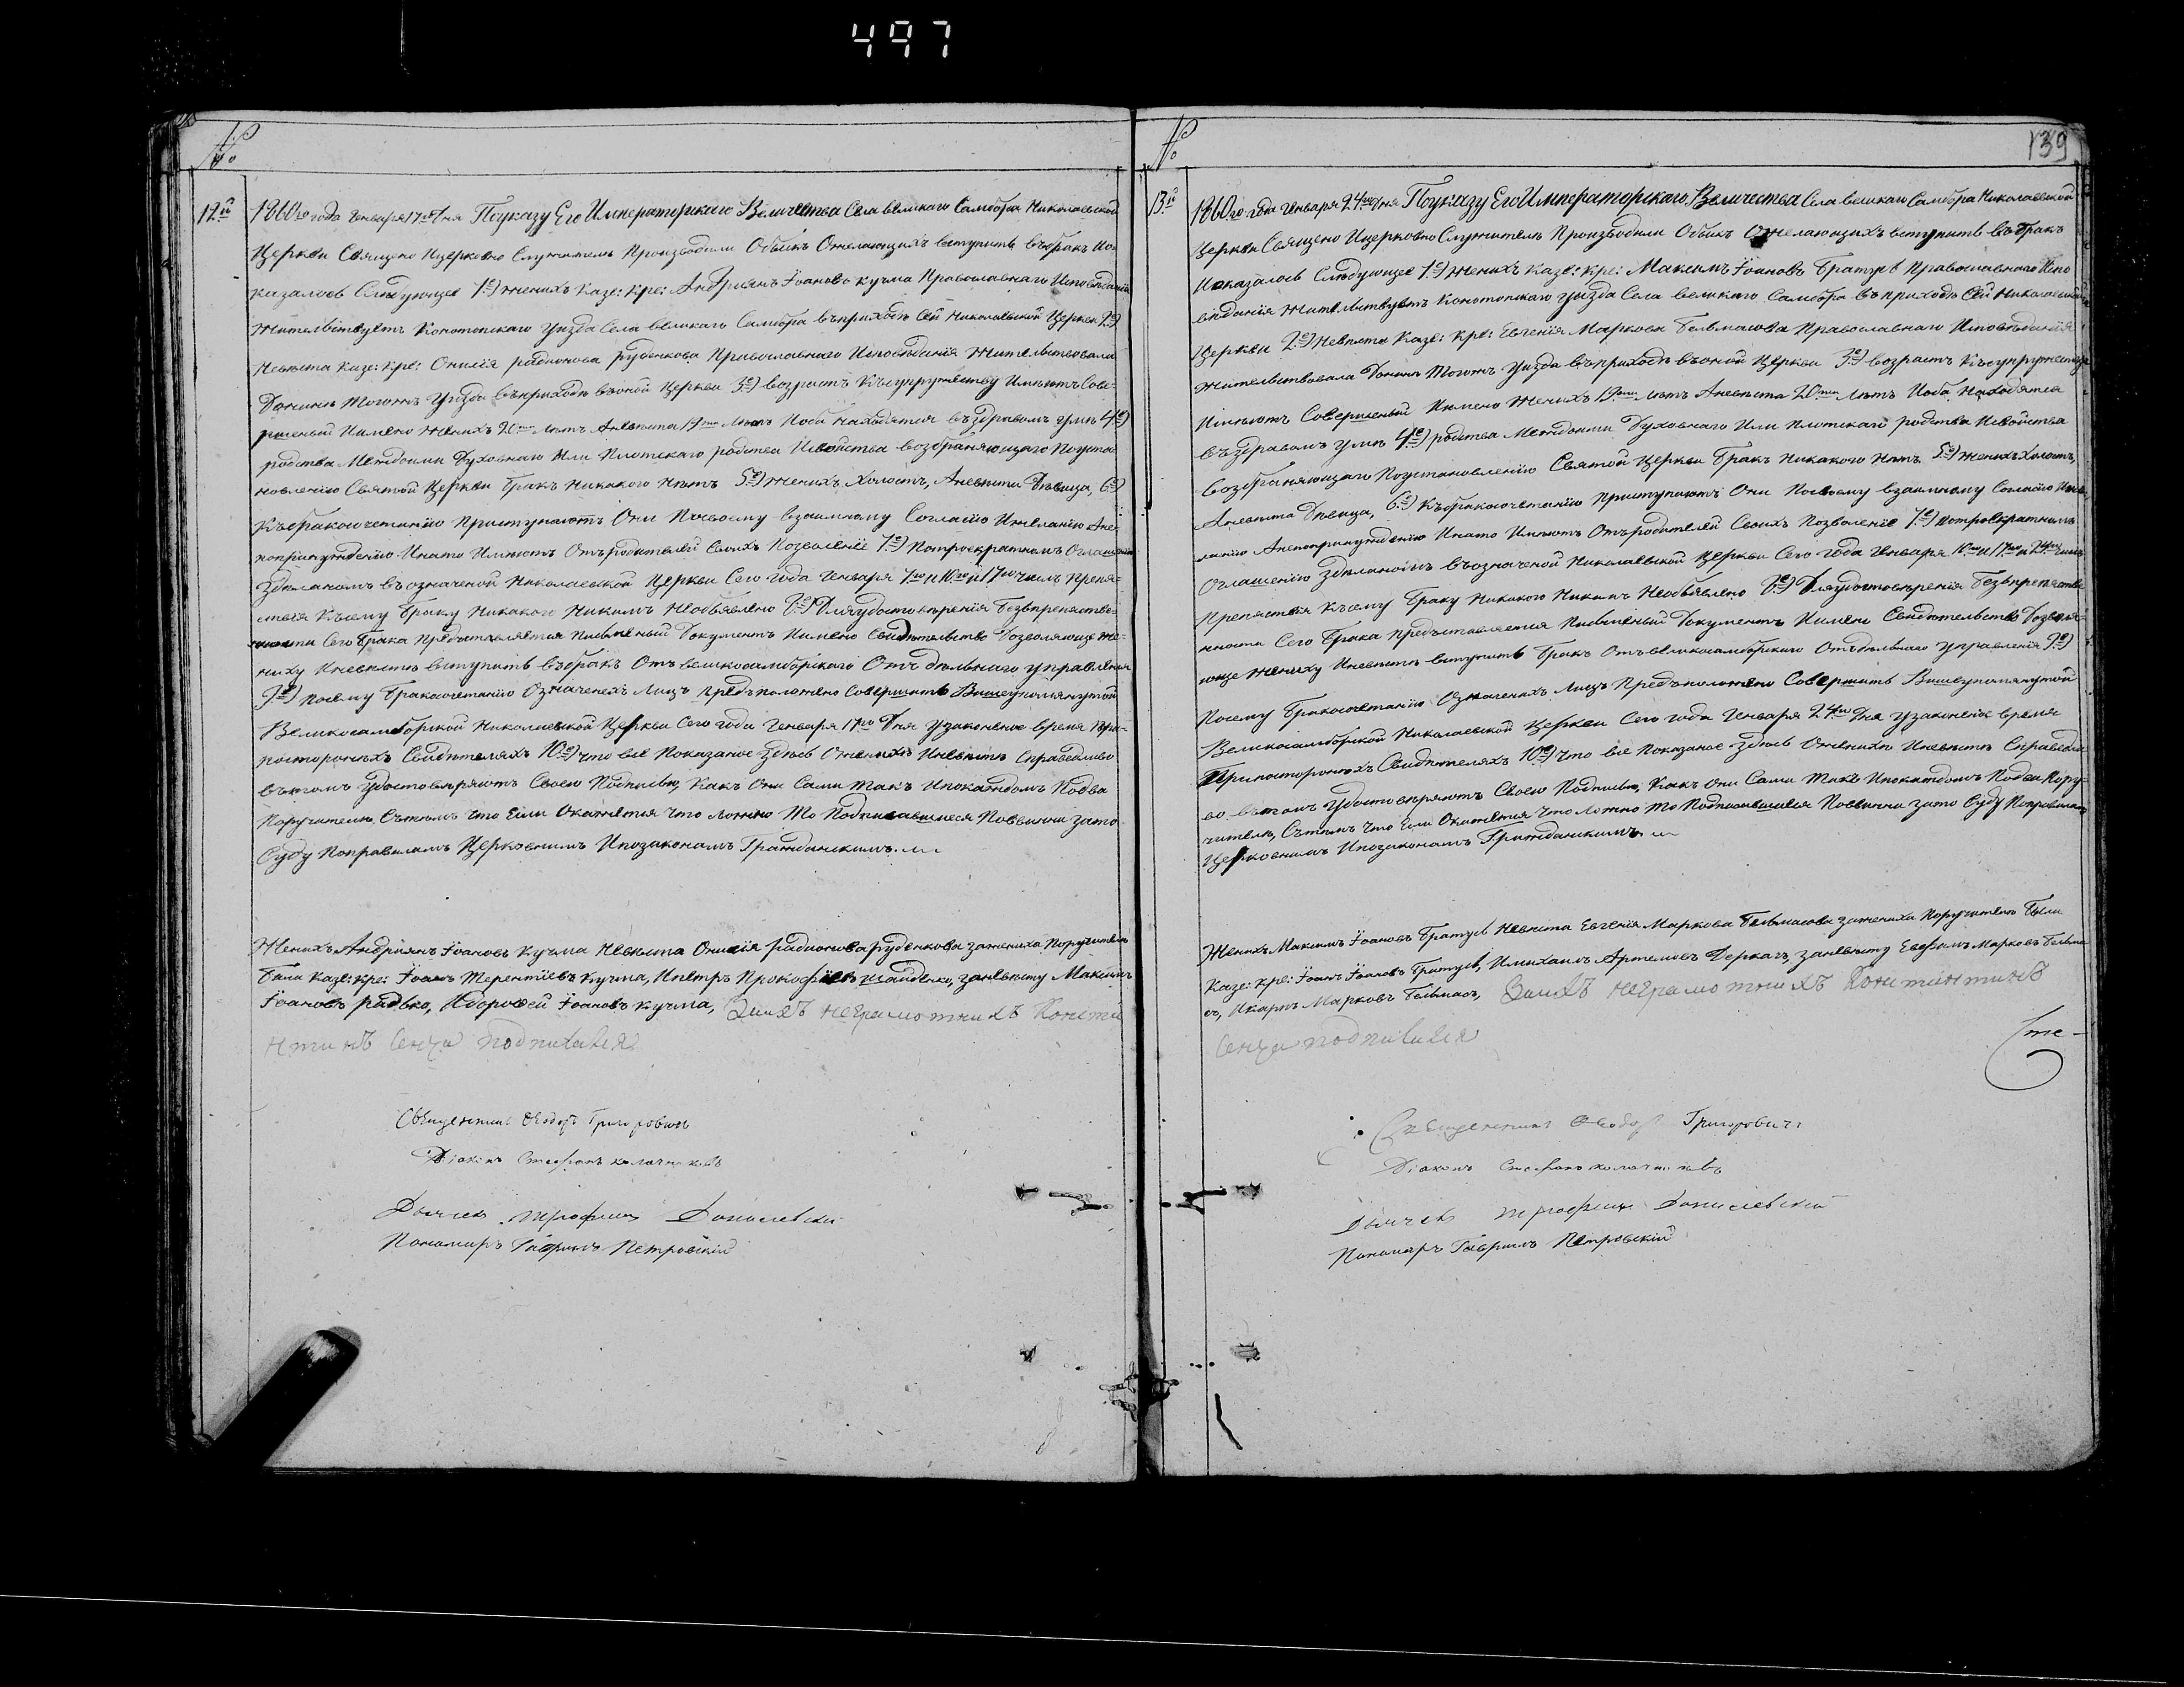 497
№
12й
1860го года Генваря 17го дня По указу Его Императорскаго Величества Села великаго Самбора Николаевской
Церкви Священо Ицерковно Служители Производили Обыск Ожелающихъ вступить въбракъ Ипо
казалось Слѣдующее 1е) женихъ Казе: Кре: Андріянъ Іоановъ Кучма Православнаго Исповѣданія
Жительствуетъ Конотопскаго уѣзда Села великаго Самбора въприходѣ Сей Николаевской Церкви 2е)
Невѣста Казе: Кре: Онисія радіонова руденкова Православнаго Исповѣданія Жительствовала
Донынѣ Тогожъ Уѣзда въприходѣ въоной Церкви 3е) возрастъ Късупружеству Имѣютъ Сове-
ршеный Имено Женихъ 20ти лѣтъ Аневѣста 19ти лѣтъ Иоба находятся въздравомъ умѣ 4е)
родства Междоими Духовнаго Или Плотскаго родства Исвойства возбраняющаго Поуста
новленію Святой Церкви Бракъ Никакого Нѣтъ 5е) Женихъ Холостъ, Аневѣста Дѣвица, 6е)
Къбракосочетанію Приступаютъ Они Посвоему взаимному Согласію Ижеланію Ане-
попринужденію Инато Имѣютъ Отъродителей Своихъ Позволеніе 7е) Потроекратномъ Оглашенію
Зделаномъ въозначеной Николаевской Церкви Сего года Генваря 7го и 10го и 17го чисъ Препя-
тствія Късему Браку Никакого Никимъ Необъявлено 8е) Дляудостовѣренія безвпрепятстве-
ности Сего Брака Предъставляется Писменый Документъ Имено Свидѣтельство Дозволяюще же-
ниху Иневѣстѣ вступить въбракъ Отъ великосамборскаго Отъдѣльнаго управленія
9е) Посему Бракосочетанію Означеныхъ Лицъ предъположено Совершить Вишеупомянутой
Великосамборской Николаевской Церкви Сего года Генваря 17го Дня Узаконеное время При-
посторонихъ Свидѣтеляхъ 10е) что все Показаное Здѣсь Оженихѣ Иневѣстѣ Справедливо
въчомъ Удостовѣряютъ Своею Подписью, Какъ Они Сами Такъ Ипокаждомъ Подва
Поручителю, Сътемъ что Если Окажется что Ложно То Подписавшиеся Повинни зато
Суду Поправиламъ Церковнимъ Ипозаконамъ Гражданскимъ.
Женихъ Андріянъ Іоановъ Кучма Невѣста Онисія радионова руденкова зажениха Поручители
Были Казе: Кре: Іоанъ Терентіевъ Кучма, Ипетръ Прокофіевъ, заневѣсту Максимъ
Іоановъ радько, Идорофей Іоановъ Кучма, Заихъ неграмотнихъ Конста
нтинъ Сенча подписался
Священникъ Феодоръ Григоровичъ
Діаконъ Стефанъ
Дьячекъ Трофимъ Данилевскій
Пономаръ Гаврилъ Петровскій
№
139
13й
1860го года Генваря 24го дня По указу Его Императорскаго Величества Села великаго Самбора Николаевской
Церкви Священо Ицерковно Служители Производили Обыск Ожелающихъ вступить въбракъ
Ипоказалось Слѣдующее 1е) Женихъ Казе: Кре: Максимъ Іоановъ Братусѣ Православнаго Испо
вѣданія Жительствуетъ Конотопскаго уѣзда Села великаго Самбора въприходѣ Сей Николаевской
Церкви 2е) Невѣста Казе: Кре: Евгенія Маркова Бельмасова Православнаго Исповѣданія
Жительствовала Донынѣ Тогожъ Уѣзда въприходѣ въоной Церкви 3е) возрастъ Късупружеству
Имѣютъ Совершеный Имено Женихъ 19ти лѣтъ Аневѣста 20ти лѣтъ Иоба Находятся
въздравомъ умѣ 4е) родства Междоими Духовнаго Или Плотскаго родства Исвойства
возбраняющаго Поустановленію Святой Церкви Бракъ Никакого Нѣтъ 5е) Женихъ Холостъ,
Аневѣста Дѣвица, 6е) Къбракосочетанію Приступаютъ Они Посвоему взаимному Согласію Иже
ланію Анепопринужденію Инато Имѣютъ Отъродителей Своихъ Позволеніе 7е) Потроекратномъ
Оглашенію Зделаномъ въозначеной Николаевской Церкви Сего года Генваря 10го и 17го и 24го чисъ
Препятствія Късему Браку Никакого Никимъ Необъявлено 8е) Дляудостовѣренія безвпрепятстве
нности Сего Брака Предъставляется Писменый Документъ Имено Свидѣтельство Дозволя-
юще Жениху Иневѣстѣ вступить Бракъ Отъ великосамборскаго Отъдѣльнаго Управленія 9е)
Посему Бракосочетанію Означеныхъ Лицъ Предъположено Совершить Вишеупомянутой
Великосамборской Николаевской Церкви Сего года Генваря 24го Дня Узаконеное время
Припосторонихъ Свидѣтеляхъ 10е) что все Показаное Здѣсь Оженихѣ Иневѣстѣ Справедли
во въчомъ Удостовѣряютъ Своею Подписью, Какъ Они Сами Такъ Ипокаждомъ Подва Пору-
чителю, Сътемъ что Если Окажется что Ложно То Подписавшиеся Повинни зато Суду Поправиламъ
Церковнимъ Ипозаконамъ Гражданскимъ.
Женихъ Максимъ Іоановъ Братусѣ Невѣста Евгенія Маркова Бельмасова зажениха Поручители Были
Казе: Кре: Іоанъ Іоановъ Братусѣ, Имихаилъ Артемовъ Деркачъ, заневѣсту Евфимъ Марковъ Бельма
съ, Икарпъ Марковъ Бельмасъ, Заихъ неграмотнихъ Константинъ
Сенча подписался
Священникъ Феодоръ Григоровичъ
Діаконъ Стефанъ
Дьячекъ Трофимъ Данилевскій
Пономаръ Гаврилъ Петровскій